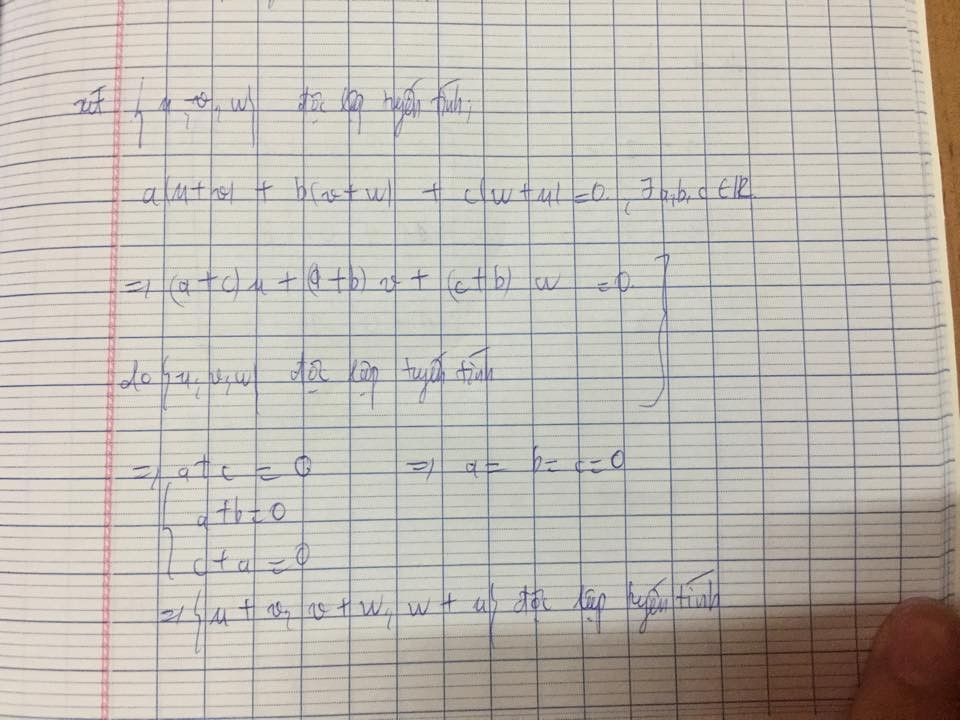 xét {u, v, w} độc lập tuyến tính,
a(u+v) + b(v+w) + c(w+u) = 0. , ∃ a, b, c ∈ ℝ.
=> (a+c)u + (a+b)v + (c+b) w = 0.
do {u, v, w} độc lập tuyến tính
=> a+c = 0 => a = b = c = 0
a+b=0
c+a = 0
=> {u+v, v+w, w+u} độc lập tuyến tính